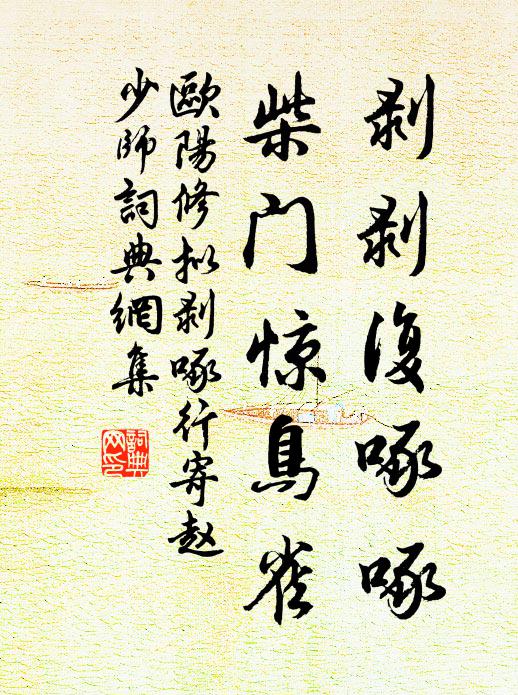 剥剥復啄啄
柴门惊鳥雀
歐陽修拟剥啄行寄赵
少師詞典網集
詞典网印